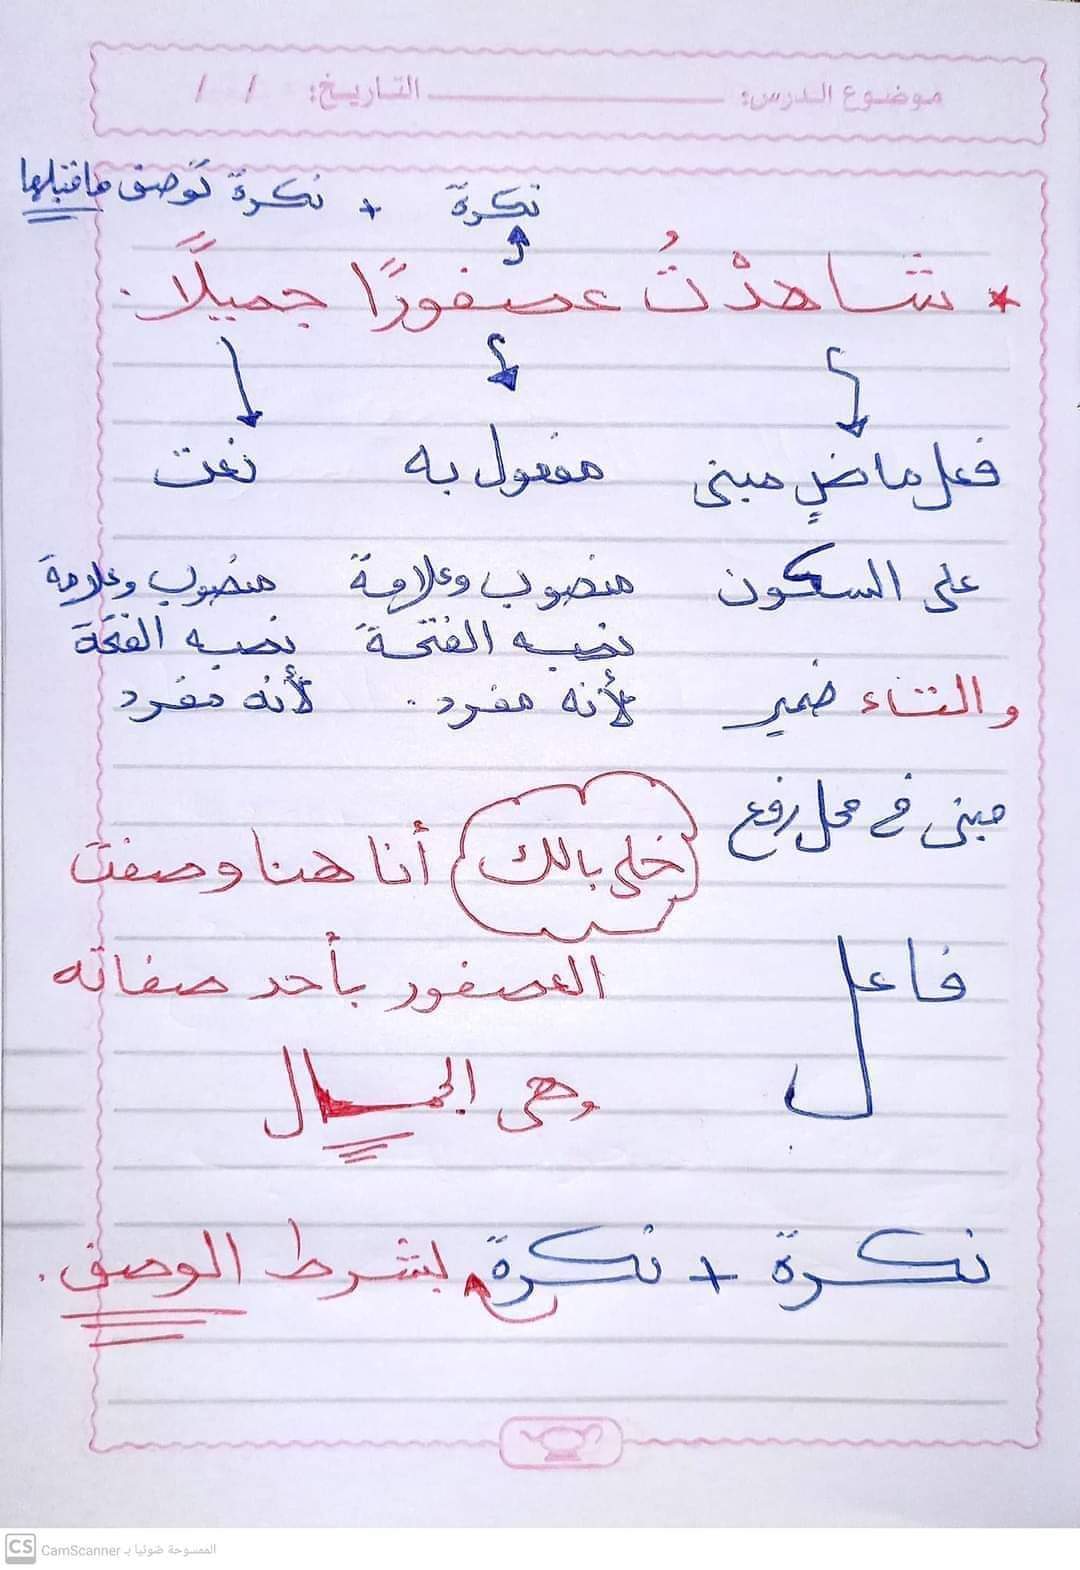 موضوع الدرس: التاريخ: / /
نكرة + نكرة توصف ما قبلها
* شاهدْتُ عصفورًا جميلًا.
فعل ماضٍ مبنى مفعول به نعت
على السكون منصوب وعلامة منصوب وعلامة
نصبه الفتحة نصبه الفتحة
والتاء ضمير لأنه مفرد. لأنه مفرد
مبنى فى محل رفع
خلى بالك أنا هنا وصفت
فاعل العصفور بأحد صفاته
وهى الجمال
نكرة + نكرة بشرط الوصف.
CS CamScanner الممسوحة ضوئيا بـ